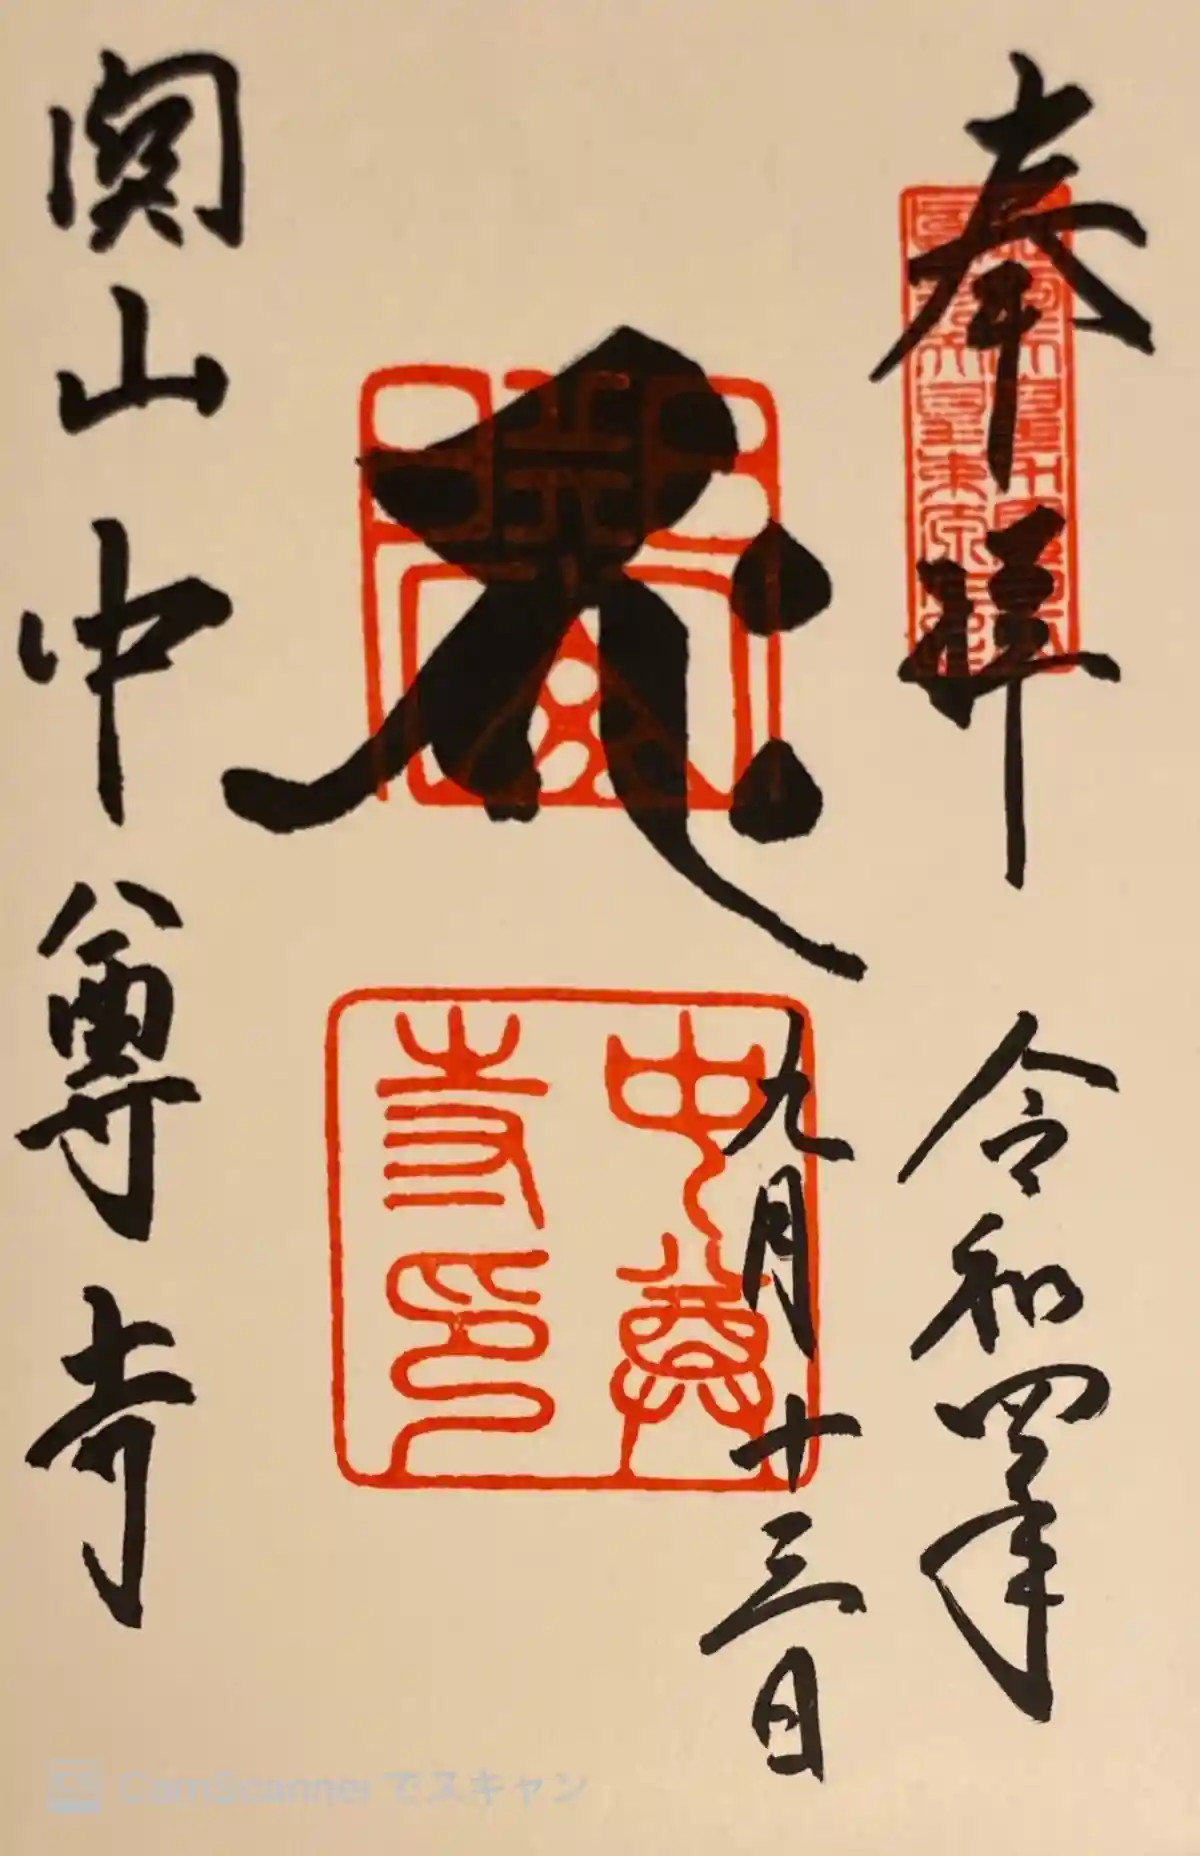 奉拝
令和四年
九月十三日
中尊
寺印
関山中尊寺
CamScannerでスキャン